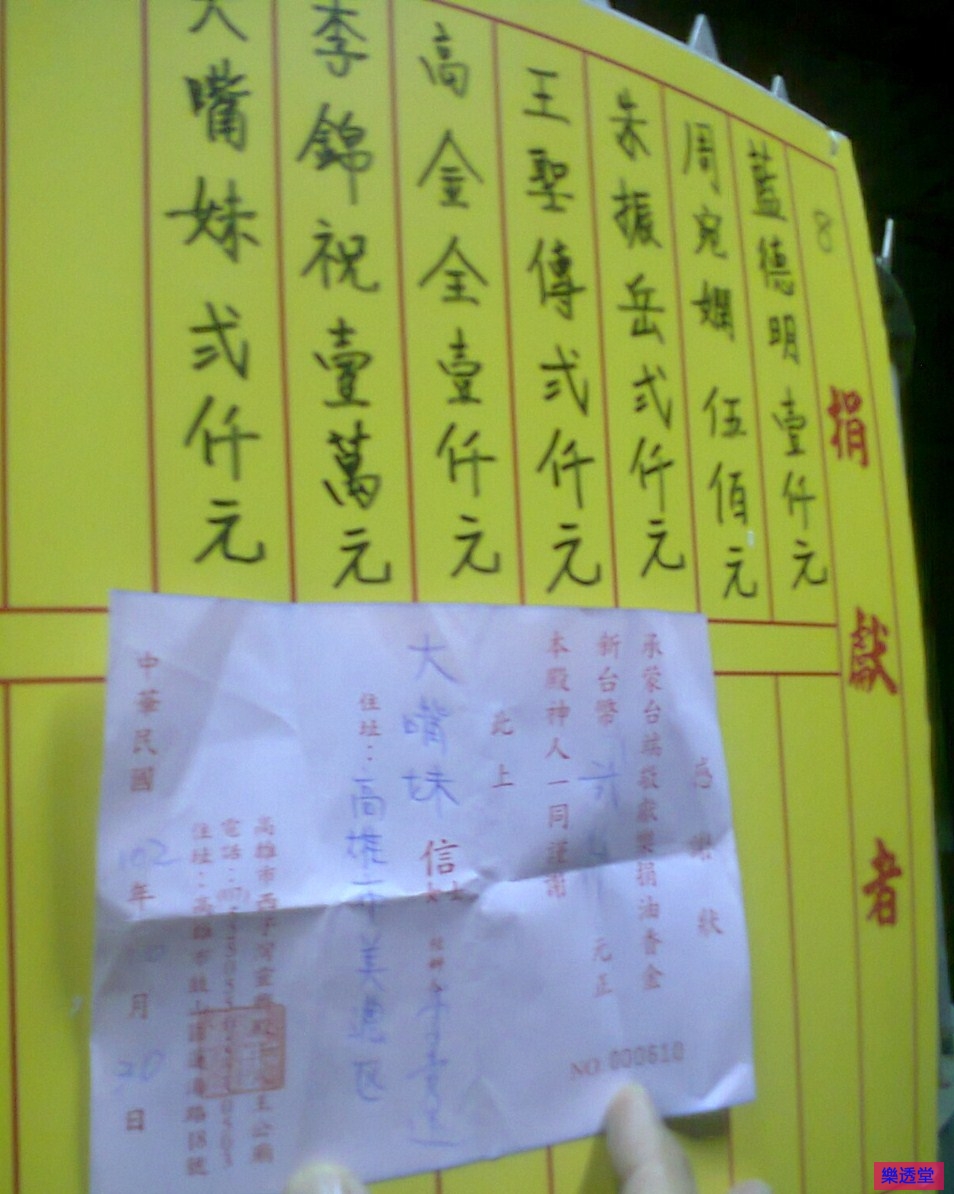 捐獻者
8
藍德明壹仟元
周宛嫻伍佰元
朱振岳弍仟元
王聖傳弍仟元
高金全壹仟元
李錦祝壹萬元
大嘴妹弍仟元
感謝狀
承蒙台端敬獻樂捐油香金
新台幣 弍仟 元正
本殿神人一同謹謝
此上
大嘴妹 信士女
住址：高雄市美濃区
高雄市西子灣靈
電話：
住址：高雄市鼓山區蓮海路18號
中華民國 102年10月20日
NO 000610
樂透堂